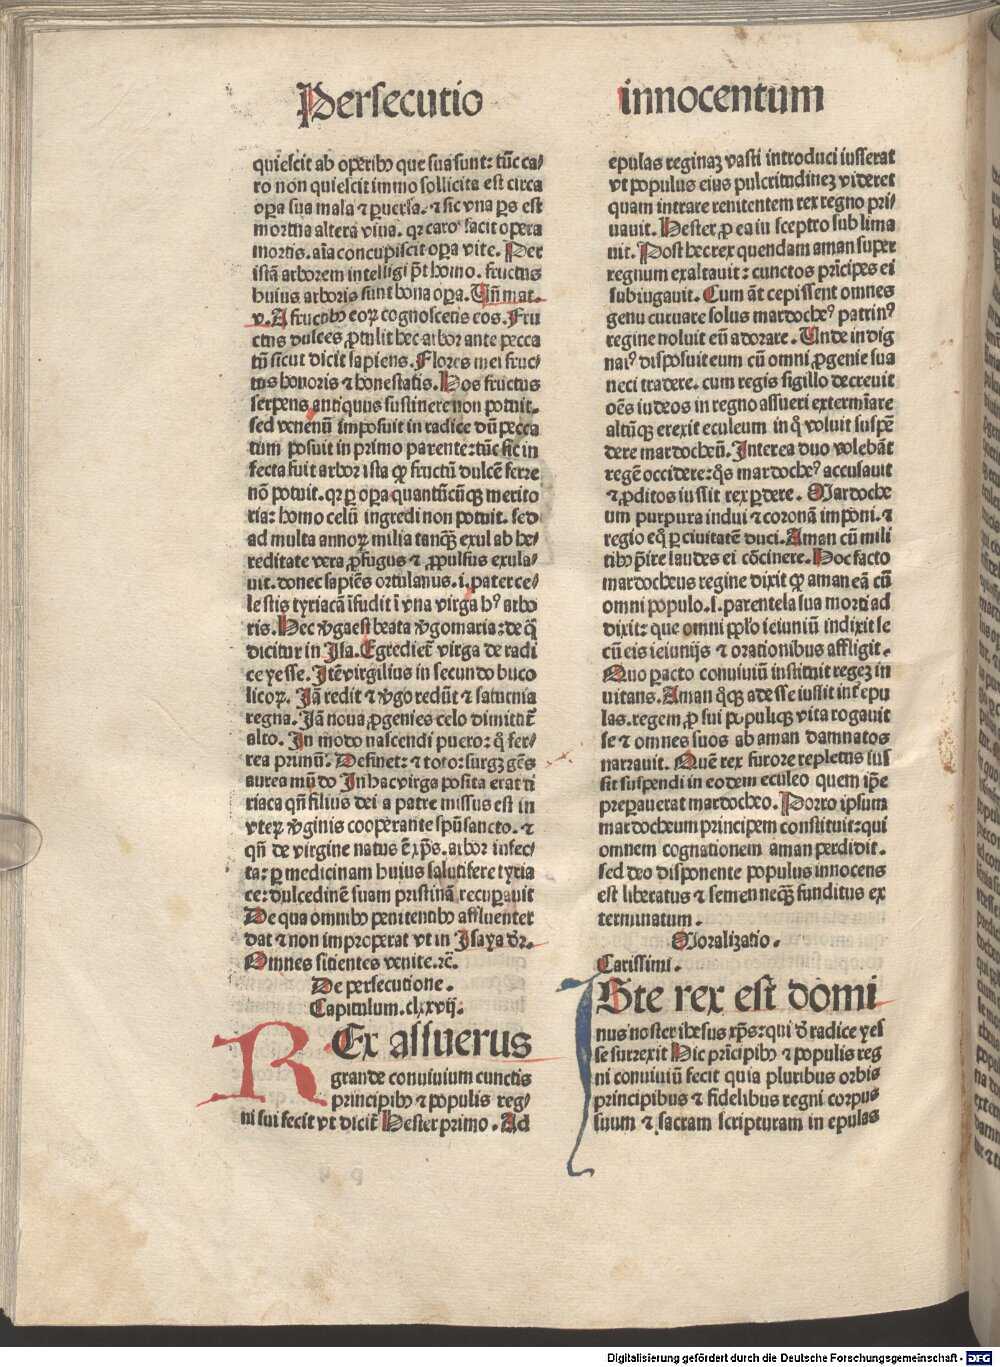 Persecutio innocentum
quiescit ab operibꝰ que sua sunt: tūc ca⸗
ro non quiescit immo sollicita est circa
oꝑa sua mala ⁊ ꝑuersa. ⁊ sic vna ꝑs est
mortua altera viua. qꝛ caro facit opera
mortis. aīa concupiscit oꝑa vite. Per
istā arborem intelligi pōt homo. fructus
huius arboris sunt bona oꝑa. Un̄ mat.
v. A fructibꝰ eoꝝ cognoscetis eos. Fru
ctus dulces ꝓtulit hec arbor ante pecca
tū sicut dicit sapiens. Flores mei fruc⸗
tus honoris ⁊ honestatis. Hos fructus
serpens antiquus sustinere non potuit.
sed venenū imposuit in radice dū pecca
tum posuit in primo parente: tūc sic in
fecta fuit arbor ista ꝙ fructū dulcē ferre
nō potuit. qꝛ ꝑ oꝑa quantūcūqꝫ merito
ria: homo celū ingredi non potuit. sed
ad multa annoꝝ milia tanqꝫ exul ab he⸗
reditate vera ꝓfugus ⁊ ꝓpulsus exula⸗
uit. donec sapiēs ortulanus. i. pater ce⸗
lestis tyriacā īfudit ī vna virga hꝰ arbo
ris. Hec v̄ga est beata v̄go maria: de q̄
dicitur in Isa. Egrediet̄ virga de radi
ce yesse. Itē virgilius in secundo buco
licoꝝ. Iā redit ⁊ v̄go redūt ⁊ saturnia
regna. Iā noua ꝓgenies celo dimittit̄
alto. In modo nascendi puero: q̄ fer⸗
rea primū. Desinet: ⁊ toto: surgꝫ gēs
aurea mūdo In hac virga posita erat ti
riaca qn̄ filius dei a patre missus est in
vteꝝ v̄ginis cooperante spū sancto. ⁊
qn̄ de virgine natus ē xp̄s. arbor infec⸗
ta: ꝑ medicinam huius salutifere tyria
ce: dulcedinē suam pristinā recuꝑauit
De qua omnibꝰ penitentibꝰ affluenter
dat ⁊ non improperat vt in Isaya dr̄.
Omnes sitientes venite. ⁊c̄.
De persecutione.
Capitulum. clxxvij:
REx assuerus
grande conuiuium cunctis
principibꝰ ⁊ populis reg⸗
ni sui fecit vt dicit̄ Hester primo. Ad
epulas reginaꝫ vasti introduci iusserat
vt populus eius pulcritudineꝫ videret
quam intrare renitentem rex regno pri⸗
uauit. Hester ꝓ ea in sceptro sublima
uit. Post hec rex quendam aman super
regnum exaltauit: cunctos prīcipes ei
subiugauit. Cum āt cepissent omnes
genu curuare solus mardocheꝰ patrinꝰ
regine noluit eū adorare. Unde indig
natꝰ disposuit eum cū omni ꝓgenie sua
neci tradere. cum regis sigillo decreuit
oēs iudeos in regno assueri extermīare
altūqꝫ erexit eculeum in q̄ voluit suspē
dere mardocheū. Interea duo volebāt
regē occidere: q̄s mardocheꝰ accusauit
⁊ ꝓditos iussit rex ꝑdere. Mardoche
um purpura indui ⁊ coronā imponi. ⁊
regio eq̄ ꝑ ciuitatē duci. Aman cū mili
tibꝰ p̄ire laudes ei cōcinere. Hoc facto
mardocheus regine dixit ꝙ aman eā cū
omni populo. s. parentela sua morti ad
dixit: que omni pplo ieiuniū indixit se
cū eis ieiunijs ⁊ orationibus affligit.
Quo ꝑacto conuiuiū instituit regeꝫ in
uitans. Aman q̄qꝫ adesse iussit int̄ epu
las. regem ꝓ sui populiqꝫ vita rogauit
se ⁊ omnes suos ab aman damnatos
narrauit. Quē rex furore repletus ius
sit suspendi in eodem eculeo quem ip̄e
preparauerat mardocheo. Porro ipsum
mardocheum principem constituit: qui
omnem cognationem aman perdidit.
sed deo disponente populus innocens
est liberatus ⁊ semen neqꝫ funditus ex
terminatum.
Moralizatio.
Carissimi.
ISte rex est domi
nus noster ihesus xp̄s: qui d̄ radice yes
se surrexit Hic prīcipibꝰ ⁊ populis reg
ni conuiuiū fecit quia pluribus orbis
principibus ⁊ fidelibus regni corpus
suum ⁊ sacram scripturam in epulas
Digitalisierung gefördert durch die Deutsche Forschungsgemeinschaft - DFG